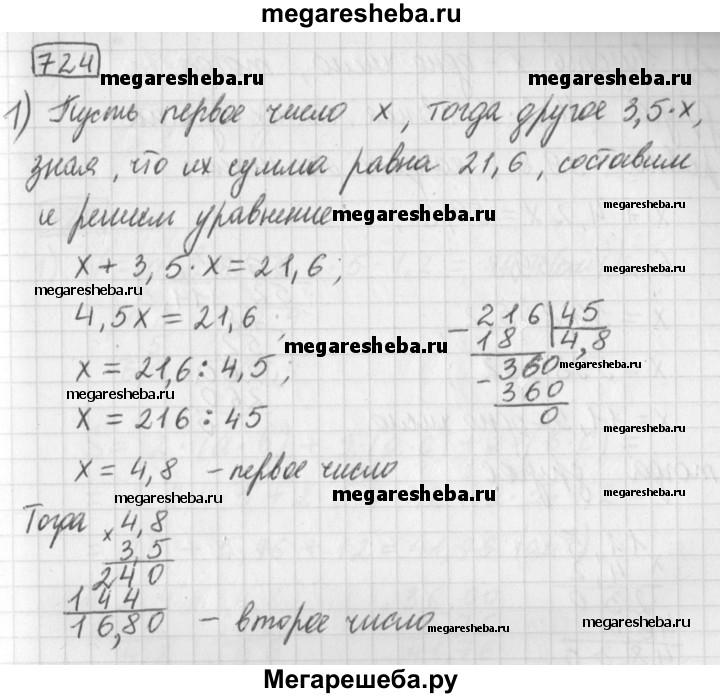 megaresheba.ru
724
megaresheba.ru megaresheba.ru
1) Пусть первое число x, тогда другое 3,5·x,
зная, что их сумма равна 21,6, составим
и решим уравнение: megaresheba.ru
x + 3,5·x = 21,6; megaresheba.ru
megaresheba.ru
4,5x = 21,6
megaresheba.ru
x = 21,6 : 4,5;
megaresheba.ru
x = 216 : 45
- 216 | 45
18 | 4,8
360 megaresheba.ru
- 360
0
x = 4,8 - первое число
megaresheba.ru megaresheba.ru
Тогда × 4,8
3,5
240
144
16,80 - второе число megaresheba.ru
megaresheba.ru
Мегарешеба.ру